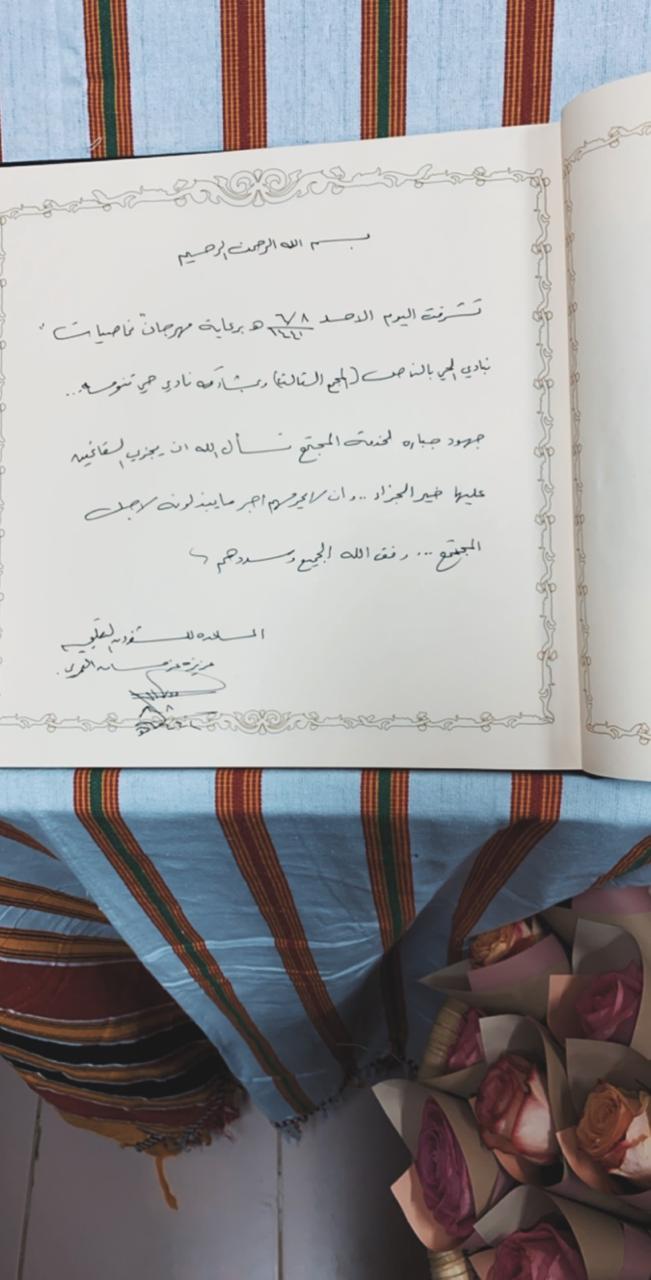 بسم الله الرحمن الرحيم
تشرفت اليوم الاحد ٦/٨ هـ برعاية مهرجان "
بنادي الحي بالناصف (المجمع الثالثة) وبمشاركة نادي حي تنومه...
جهود جباره لخدمة المجتمع نسأل الله ان يجزي القائمين
عليها خير الجزاء .. وان لا يحرمهم اجر ما يبذلونه لاجل
المجتمع ... وفق الله الجميع وسددهم
المساعده للشؤون التعليميه
عزيزة